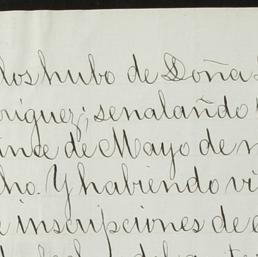 los hubo de Doña
riguez; señalando
ince de Mayo de
ho. Y habiendo vi
inscripciones de